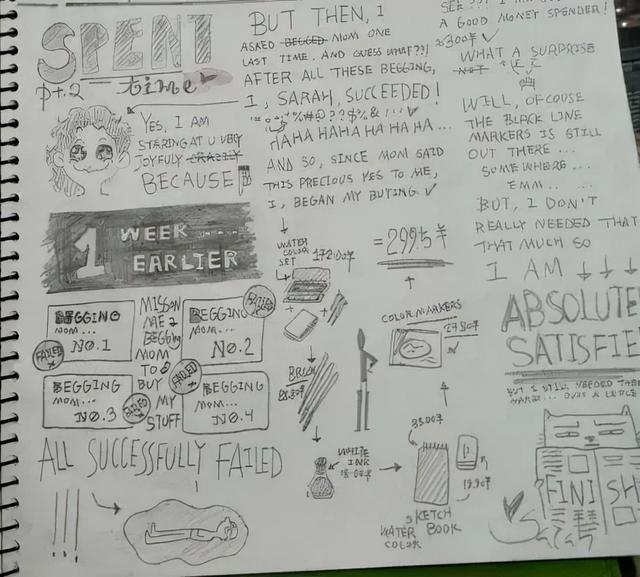 SPENT
pt.2 — time
YES, I AM
STARING AT U VERY
JOYFULY CRAZILY
BECAUSE
1 WEEK
EARLIER
BEGGING
MOM...
NO.1
FAILED
MISSON
ME 2
BEGGING
MOM
TO
BUY
MY
STUFF
BEGGING
MOM...
NO.2
FAILED
BEGGING
MOM...
NO.3
FAILED
BEGGING
MOM...
NO.4
FAILED
ALL SUCCESSFULLY FAILED
!!!
BUT THEN, I
ASKED BEGGED MOM ONE
LAST TIME. AND GUESS WHAT??!
AFTER ALL THESE BEGGING,
I, SARAH, SUCCEEDED!
HAHAHAHAHAHAHA...
AND SO, SINCE MOM SAID
THIS PRECIOUS YES TO ME,
I, BEGAN MY BUYING ✓
WATER
COLOR
SET
+
+
WHITE
INK
SKETCH
BOOK
WATER
COLOR
COLOR MARKERS
= 2995¥
SEE
A GOOD MONEY SPENDER!
≈300¥ ✓
WHAT A SURPRISE
NOT
WILL, OFCOUSE
THE BLACK LINE
MARKERS IS STILL
OUT THERE...
SOMEWHERE...
EMM......
BUT, I DON'T
REALLY NEEDED THAT
THAT MUCH SO
I AM ↓ ↓ ↓
ABSOLUTE
SATISFIE
BUT I STILL NEEDED THE
FINI SH